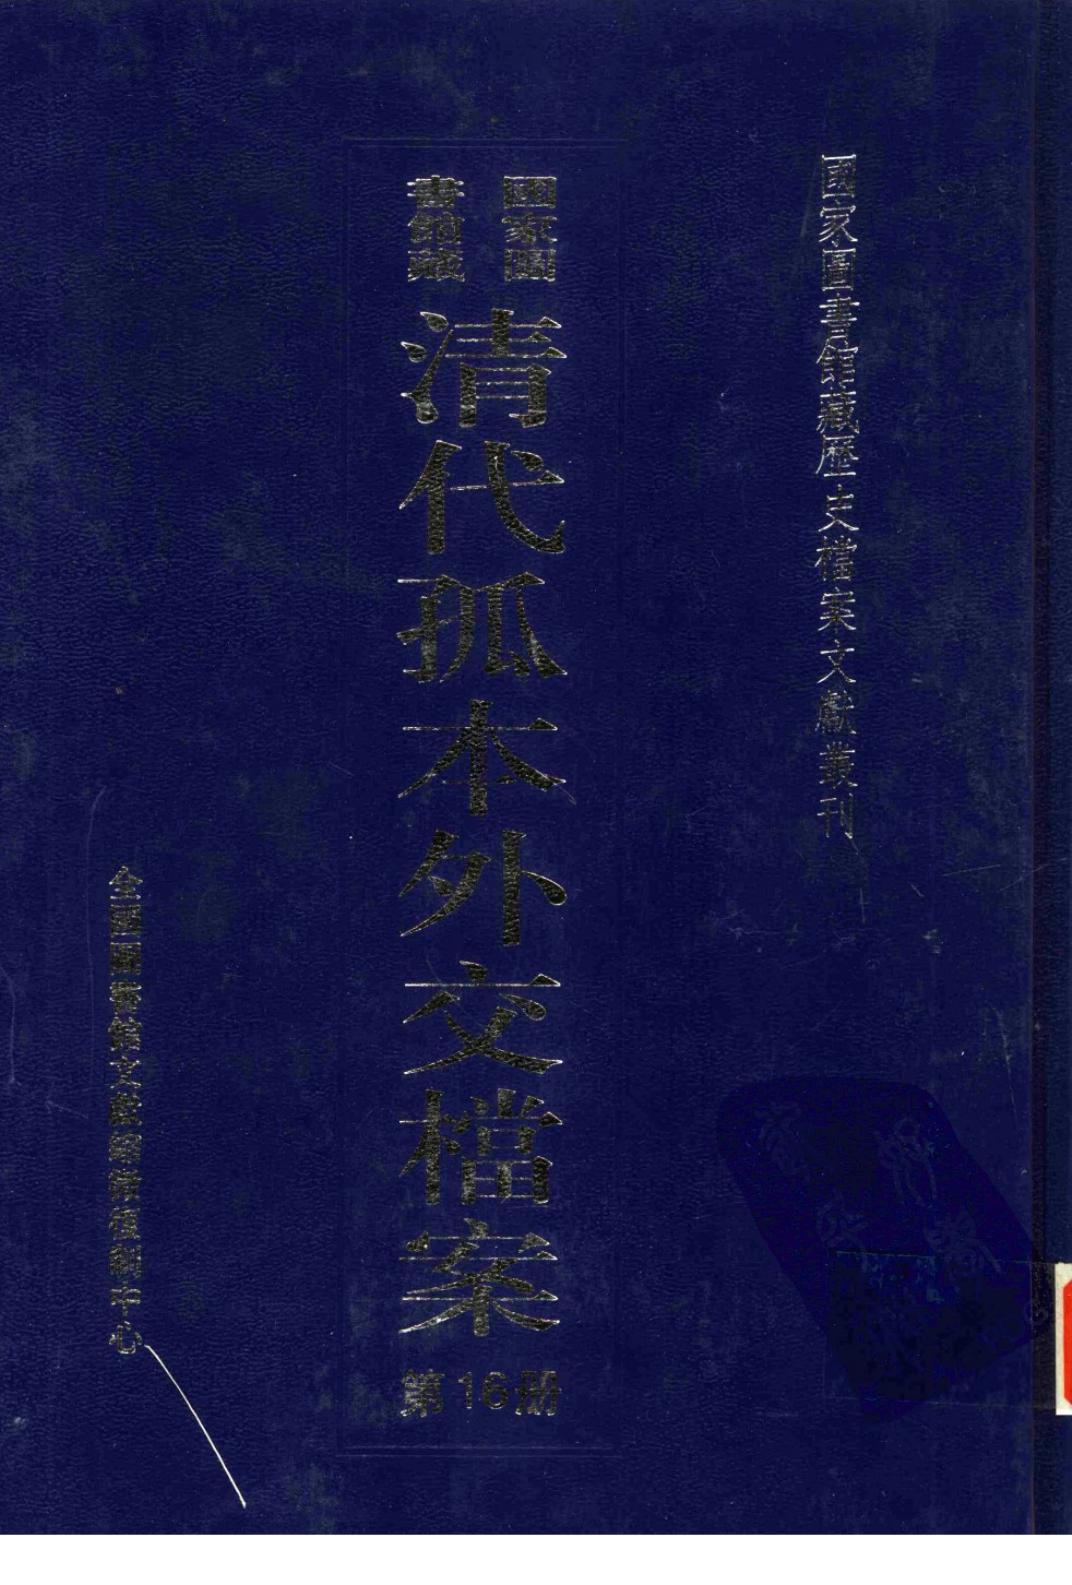 國家圖書館藏歷史檔案文獻叢刊
國家圖
書館藏
清代孤本外交檔案
第16册
全國圖書館文獻縮微複制中心